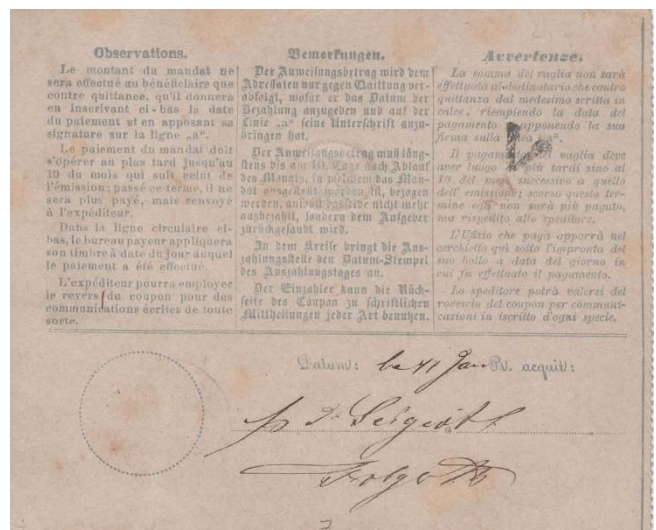 Observations.
Le montant du mandat ne
sera effectué au bénéficiaire que
contre quittance, qu'il donnera
en inscrivant ci-bas la date
du paiement et en apposant sa
signature sur la ligne „a“.
Le paiement du mandat doit
s'opérer au plus tard jusqu'au
10 du mois qui suit celui de
l'émission; passé ce terme, il ne
sera plus payé, mais renvoyé
à l'expéditeur.
Dans la ligne circulaire ci-
bas, le bureau payeur appliquera
son timbre à date du jour auquel
le paiement a été effectué.
L'expéditeur pourra employer
le revers du coupon pour des
communications écrites de toute
sorte.
Bemerkungen.
Der Anweisungsbetrag wird dem
Adressaten nur gegen Quittung ver-
abfolgt, wofür er das Datum der
Bezahlung anzugeben und auf der
Linie „a“ seine Unterschrift anzu-
bringen hat.
Der Anweisungsbetrag muß läng-
stens bis am 10. Tage nach Ablauf
des Monats, in welchem das Man-
dat ausgestellt worden ist, bezogen
werden, anisst dasselbe nicht mehr
ausbezahlt, sondern dem Aufgeber
zurückgesandt wird.
In dem Kreise bringt die Aus-
zahlungsstelle den Datum-Stempel
des Auszahlungstages an.
Der Einzahler kann die Rück-
seite des Coupon zu schriftlichen
Mittheilungen jeder Art benutzen.
Avvertenze.
La somma del vaglia non sarà
effettuata al destinatario che contro
quittanza dal medesimo scritta in
calce, riempiendo la data del
pagamento apponendo la sua
firma sulla linea „a“.
Il pagamento del vaglia deve
aver luogo più tardi sino al
10 del mese successivo a quello
dell' emissione; scorso questo ter-
mine egli non sarà più pagato,
ma rispedito allo speditore.
L'Ufizio che paga apporrà nel
cerchietto qui sotto l'impronta del
suo bollo a data del giorno in
cui fu effettuato il pagamento.
Lo speditore potrà valersi del
rovescio del coupon per communi-
cazioni in iscritto d'ogni specie.
Datum: Jan Pr. acquit: